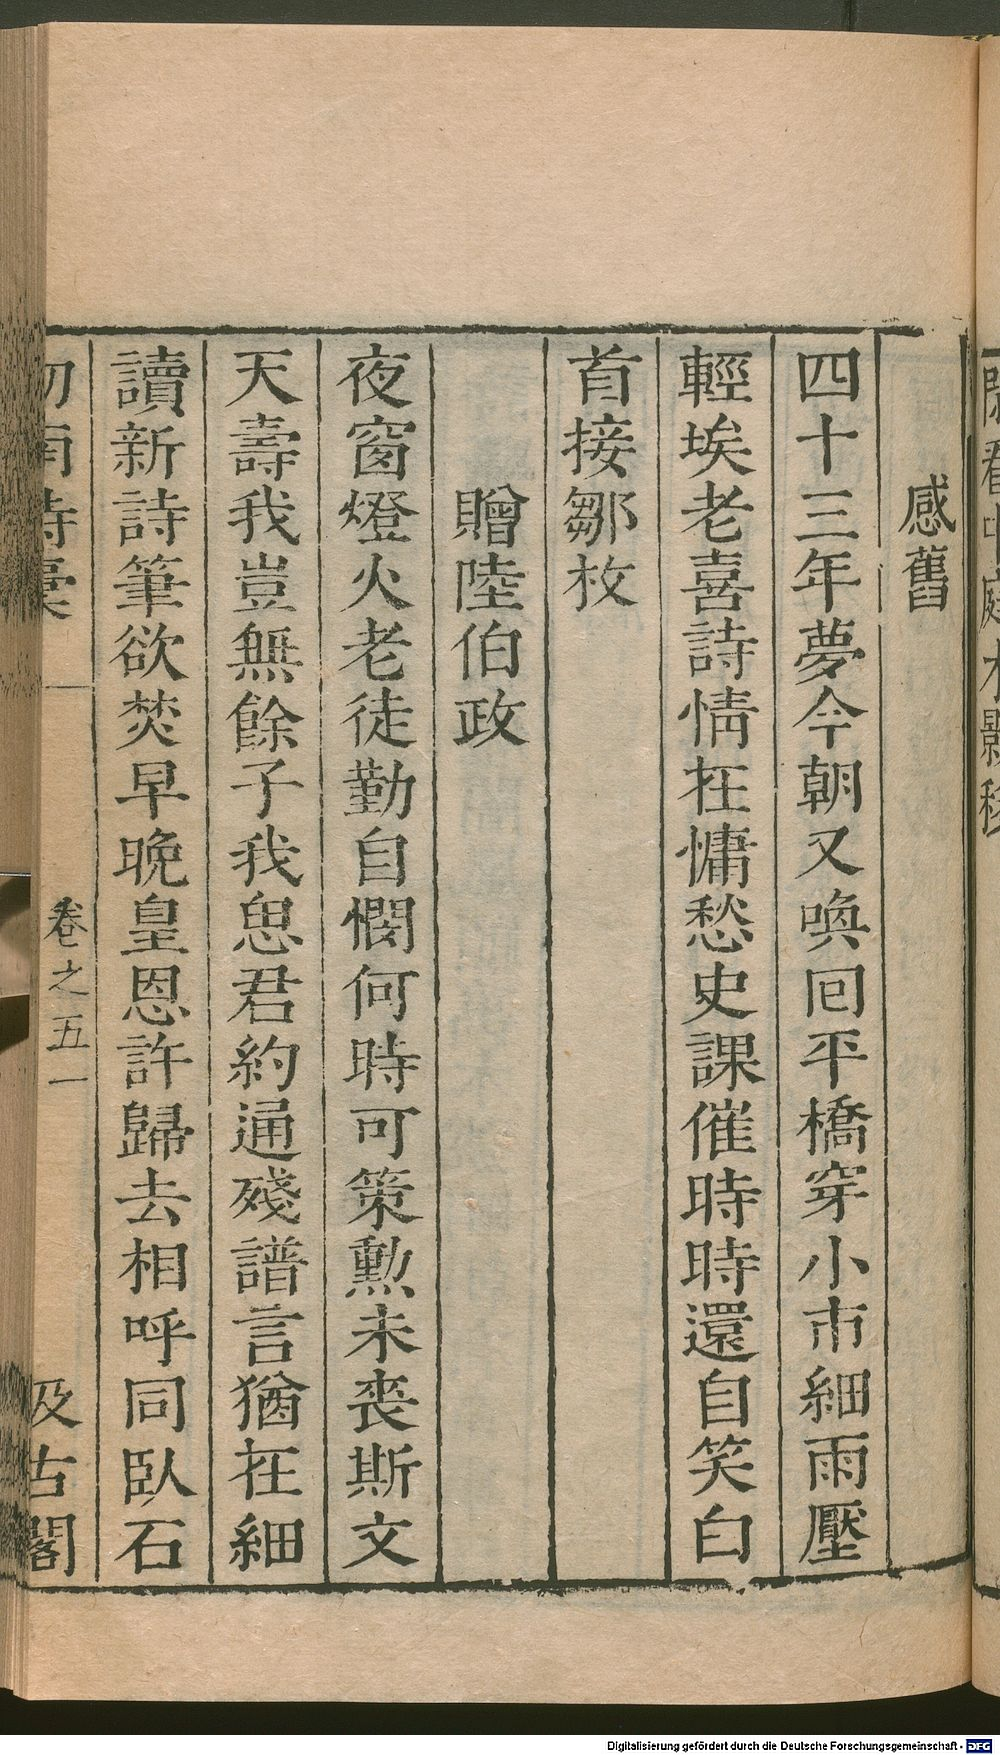 感舊
四十三年夢今朝又喚囘平橋穿小市細雨壓
輕埃老喜詩情在慵愁史課催時時還自笑白
首接鄒枚
贈陸伯政
夜窗燈火老徒勤自憫何時可策勲未喪斯文
天壽我豈無餘子我思君約通殘譜言猶在細
讀新詩筆欲焚早晚皇恩許歸去相呼同臥石
卷之五一
汲古閣
Digitalisierung gefördert durch die Deutsche Forschungsgemeinschaft - DFG